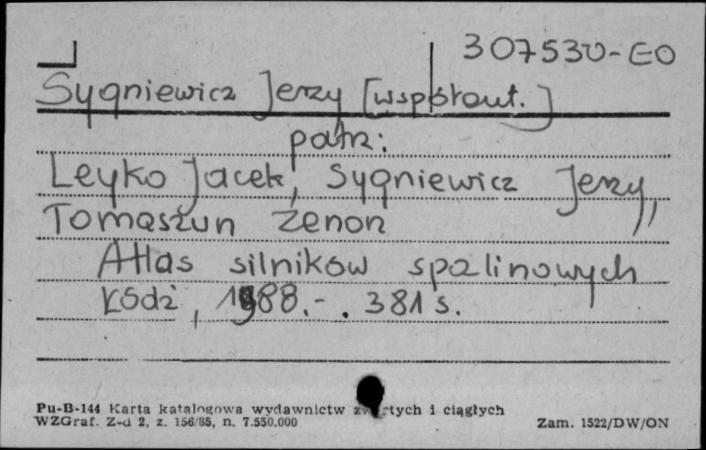 307530-EO
Sygniewicz Jerzy [współaut.]
patrz:
Leyko Jacek, Sygniewicz Jerzy,
Tomaszun Zenon
Atlas silników spalinowych
Łódź, 1988.-. 381 s.
Pu-B-144 Karta katalogowa wydawnictw zwartych i ciągłych
WZGraf. Z-d 2, z. 156/85, n. 7.550.000
Zam. 1522/DW/ON